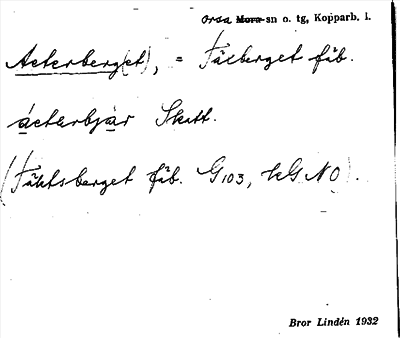 Orsa Mora-sn o. tg, Kopparb. l.
Acterberg(et), = Fäcberget fäb.
ácterbjär Skatt.
(Täktsberget fäb. G103, kG NO).
Bror Lindén 1932